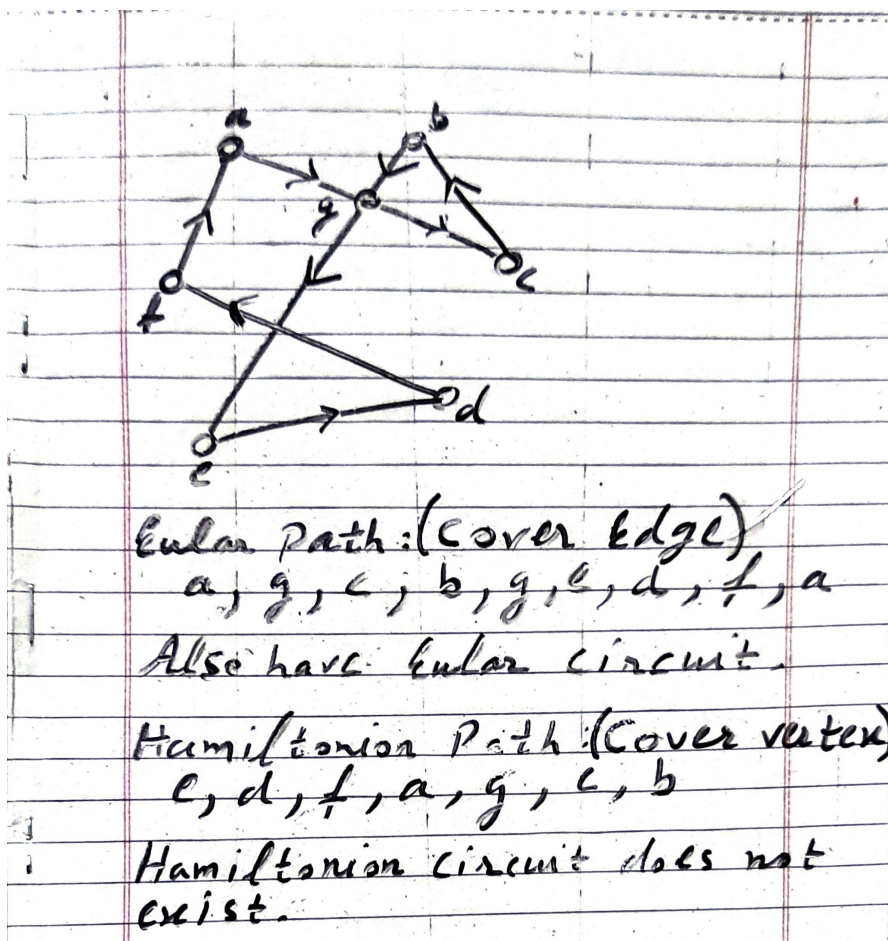 a
b
g
c
f
d
e
Eular Path:(Cover Edge)
a, g, c, b, g, e, d, f, a
Also have Eular circuit.
Hamiltonion Path:(Cover vertex)
e, d, f, a, g, c, b
Hamiltonion circuit does not
exist.